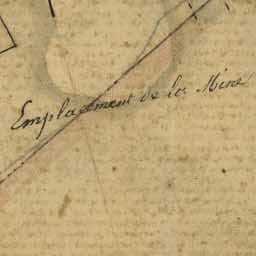 Emplacement de la Mine